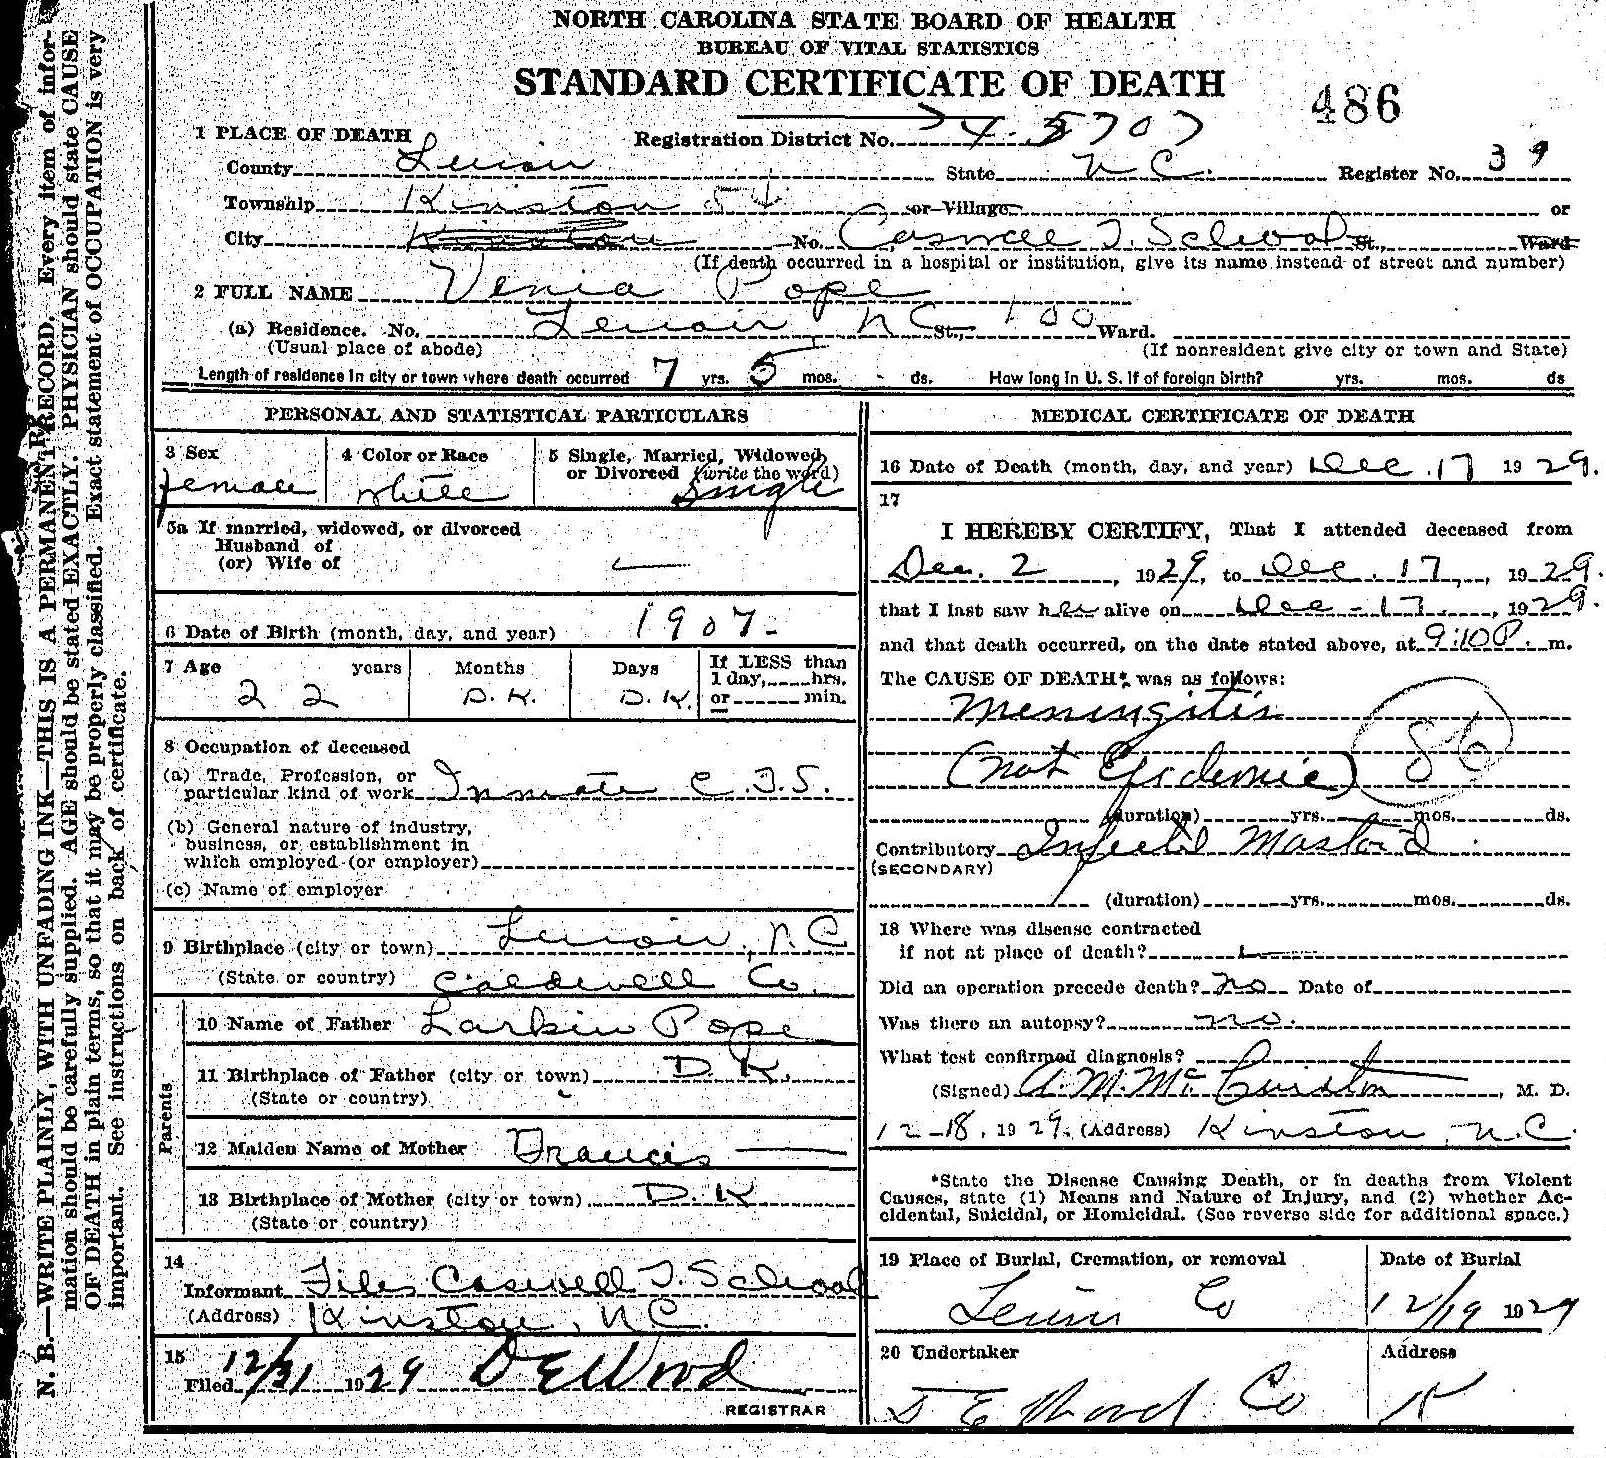 NORTH CAROLINA STATE BOARD OF HEALTH
BUREAU OF VITAL STATISTICS
STANDARD CERTIFICATE OF DEATH
486
1 PLACE OF DEATH
Registration District No. 5707
County Lenoir State N.C. Register No. 39
Township Kinston 54 or Village or
City Kinston No. Caswell T. School St., Ward
(If death occurred in a hospital or institution, give its name instead of street and number)
2 FULL NAME Venia Pope
(a) Residence. No. Lenoir NC St., 100 Ward.
(Usual place of abode) (If nonresident give city or town and State)
Length of residence in city or town where death occurred 7 yrs. 5 mos. - ds. How long in U. S. if of foreign birth? yrs. mos. ds
PERSONAL AND STATISTICAL PARTICULARS
3 Sex
female
4 Color or Race
white
5 Single, Married, Widowed,
or Divorced (write the word)
Single
5a If married, widowed, or divorced
Husband of
(or) Wife of
6 Date of Birth (month, day, and year) 1907-
7 Age years Months Days If LESS than
1 day, hrs.
22 D.K. D.K. or min.
8 Occupation of deceased
(a) Trade, Profession, or
particular kind of work Inmate C.T.S.
(b) General nature of industry,
business, or establishment in
which employed (or employer)
(c) Name of employer
9 Birthplace (city or town) Lenoir, N.C
(State or country) Caldwell Co.
Parents
10 Name of Father Larkin Pope
11 Birthplace of Father (city or town) D.K.
(State or country)
12 Maiden Name of Mother Francis
13 Birthplace of Mother (city or town) D.K
(State or country)
14
Informant Files Caswell T. School
(Address) Kinston, N.C.
15
Filed 12/31 1929 D E Wood
REGISTRAR
MEDICAL CERTIFICATE OF DEATH
16 Date of Death (month, day, and year) Dec. 17 1929.
17
I HEREBY CERTIFY, That I attended deceased from
Dec. 2, 1929, to Dec. 17, 1929.
that I last saw her alive on Dec-17, 1929.
and that death occurred, on the date stated above, at 9:10 P. m.
The CAUSE OF DEATH* was as follows:
Meningitis
(not Epidemic) 86
(duration) yrs. mos. ds.
Contributory Infected Mastoid
(SECONDARY)
(duration) yrs. mos. ds.
18 Where was disease contracted
if not at place of death?
Did an operation precede death? no Date of
Was there an autopsy? no.
What test confirmed diagnosis?
(Signed) A.M. McCuiston, M. D.
12-18, 1929. (Address) Kinston, N.C.
*State the Disease Causing Death, or in deaths from Violent
Causes, state (1) Means and Nature of Injury, and (2) whether Ac-
cidental, Suicidal, or Homicidal. (See reverse side for additional space.)
19 Place of Burial, Cremation, or removal Date of Burial
Lenoir Co 12/19 1929
20 Undertaker Address
Wood Co K
N. B.—WRITE PLAINLY, WITH UNFADING INK—THIS IS A PERMANENT RECORD. Every item of infor-
mation should be carefully supplied. AGE should be stated EXACTLY. PHYSICIAN should state CAUSE
OF DEATH in plain terms, so that it may be properly classified. Exact statement of OCCUPATION is very
important. See instructions on back of certificate.